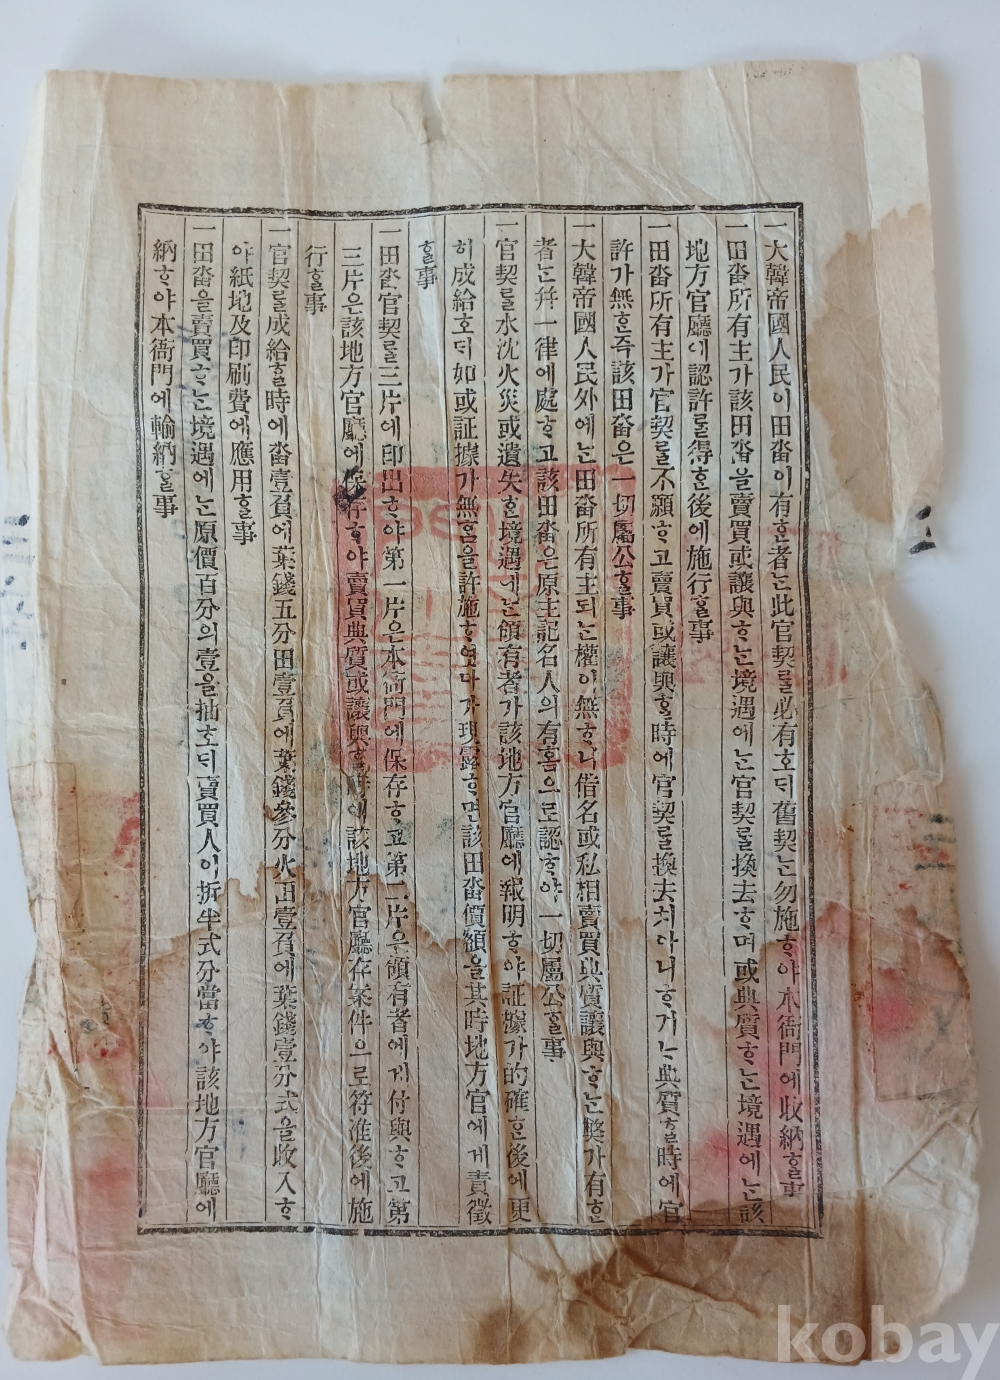 一大韓帝國人民이田畓이有ᄒᆞᆫ者ᄂᆞᆫ此官契ᄅᆞᆯ必有호ᄃᆡ舊契ᄂᆞᆫ勿施ᄒᆞ야本衙門에收納ᄒᆞᆯ事
一田畓所有主가該田畓을賣買或讓與ᄒᆞᄂᆞᆫ境遇에ᄂᆞᆫ官契ᄅᆞᆯ換去ᄒᆞ며或典質ᄒᆞᄂᆞᆫ境遇에ᄂᆞᆫ該
地方官廳에認許ᄅᆞᆯ得ᄒᆞᆫ後에施行ᄒᆞᆯ事
一田畓所有主가官契ᄅᆞᆯ不願ᄒᆞ고賣買或讓與ᄒᆞᆯ時에官契ᄅᆞᆯ換去치아니ᄒᆞ거ᄂᆞ典質ᄒᆞᆯ時에官
許가無ᄒᆞᆫ즉該田畓은一切屬公ᄒᆞᆯ事
一大韓帝國人民外에ᄂᆞᆫ田畓所有主되ᄂᆞᆫ權이無ᄒᆞ니借名或私相賣買典質讓與ᄒᆞᄂᆞᆫ獘가有ᄒᆞᆫ
者ᄂᆞᆫ幷一律에處ᄒᆞ고該田畓은原主記名人의有홈으로認ᄒᆞ야一切屬公ᄒᆞᆯ事
一官契ᄅᆞᆯ水沈火災或遺失ᄒᆞᆫ境遇에ᄂᆞᆫ領有者가該地方官廳에報明ᄒᆞ야証據가的確ᄒᆞᆫ後에更
히成給호ᄃᆡ如或証據가無홈을許施ᄒᆞ엿다가現露ᄒᆞ면該田畓價額을其時地方官에게責徵
ᄒᆞᆯ事
一田畓官契ᄅᆞᆯ三片에印出ᄒᆞ야第一片은本衙門에保存ᄒᆞ고第二片은領有者에게付與ᄒᆞ고第
三片은該地方官廳에保存ᄒᆞ야賣買典質或讓與ᄒᆞᆯ時에該地方官廳存案件으로符准後에施
行ᄒᆞᆯ事
一官契ᄅᆞᆯ成給ᄒᆞᆯ時에畓壹負에葉錢五分田壹負에葉錢參分火田壹負에葉錢壹分式을收入ᄒᆞ
야紙地及印刷費에應用ᄒᆞᆯ事
一田畓을賣買ᄒᆞᄂᆞᆫ境遇에ᄂᆞᆫ原價百分의壹을抽호ᄃᆡ賣買人이折半式分當ᄒᆞ야該地方官廳에
納ᄒᆞ야本衙門에輸納ᄒᆞᆯ事
kobay